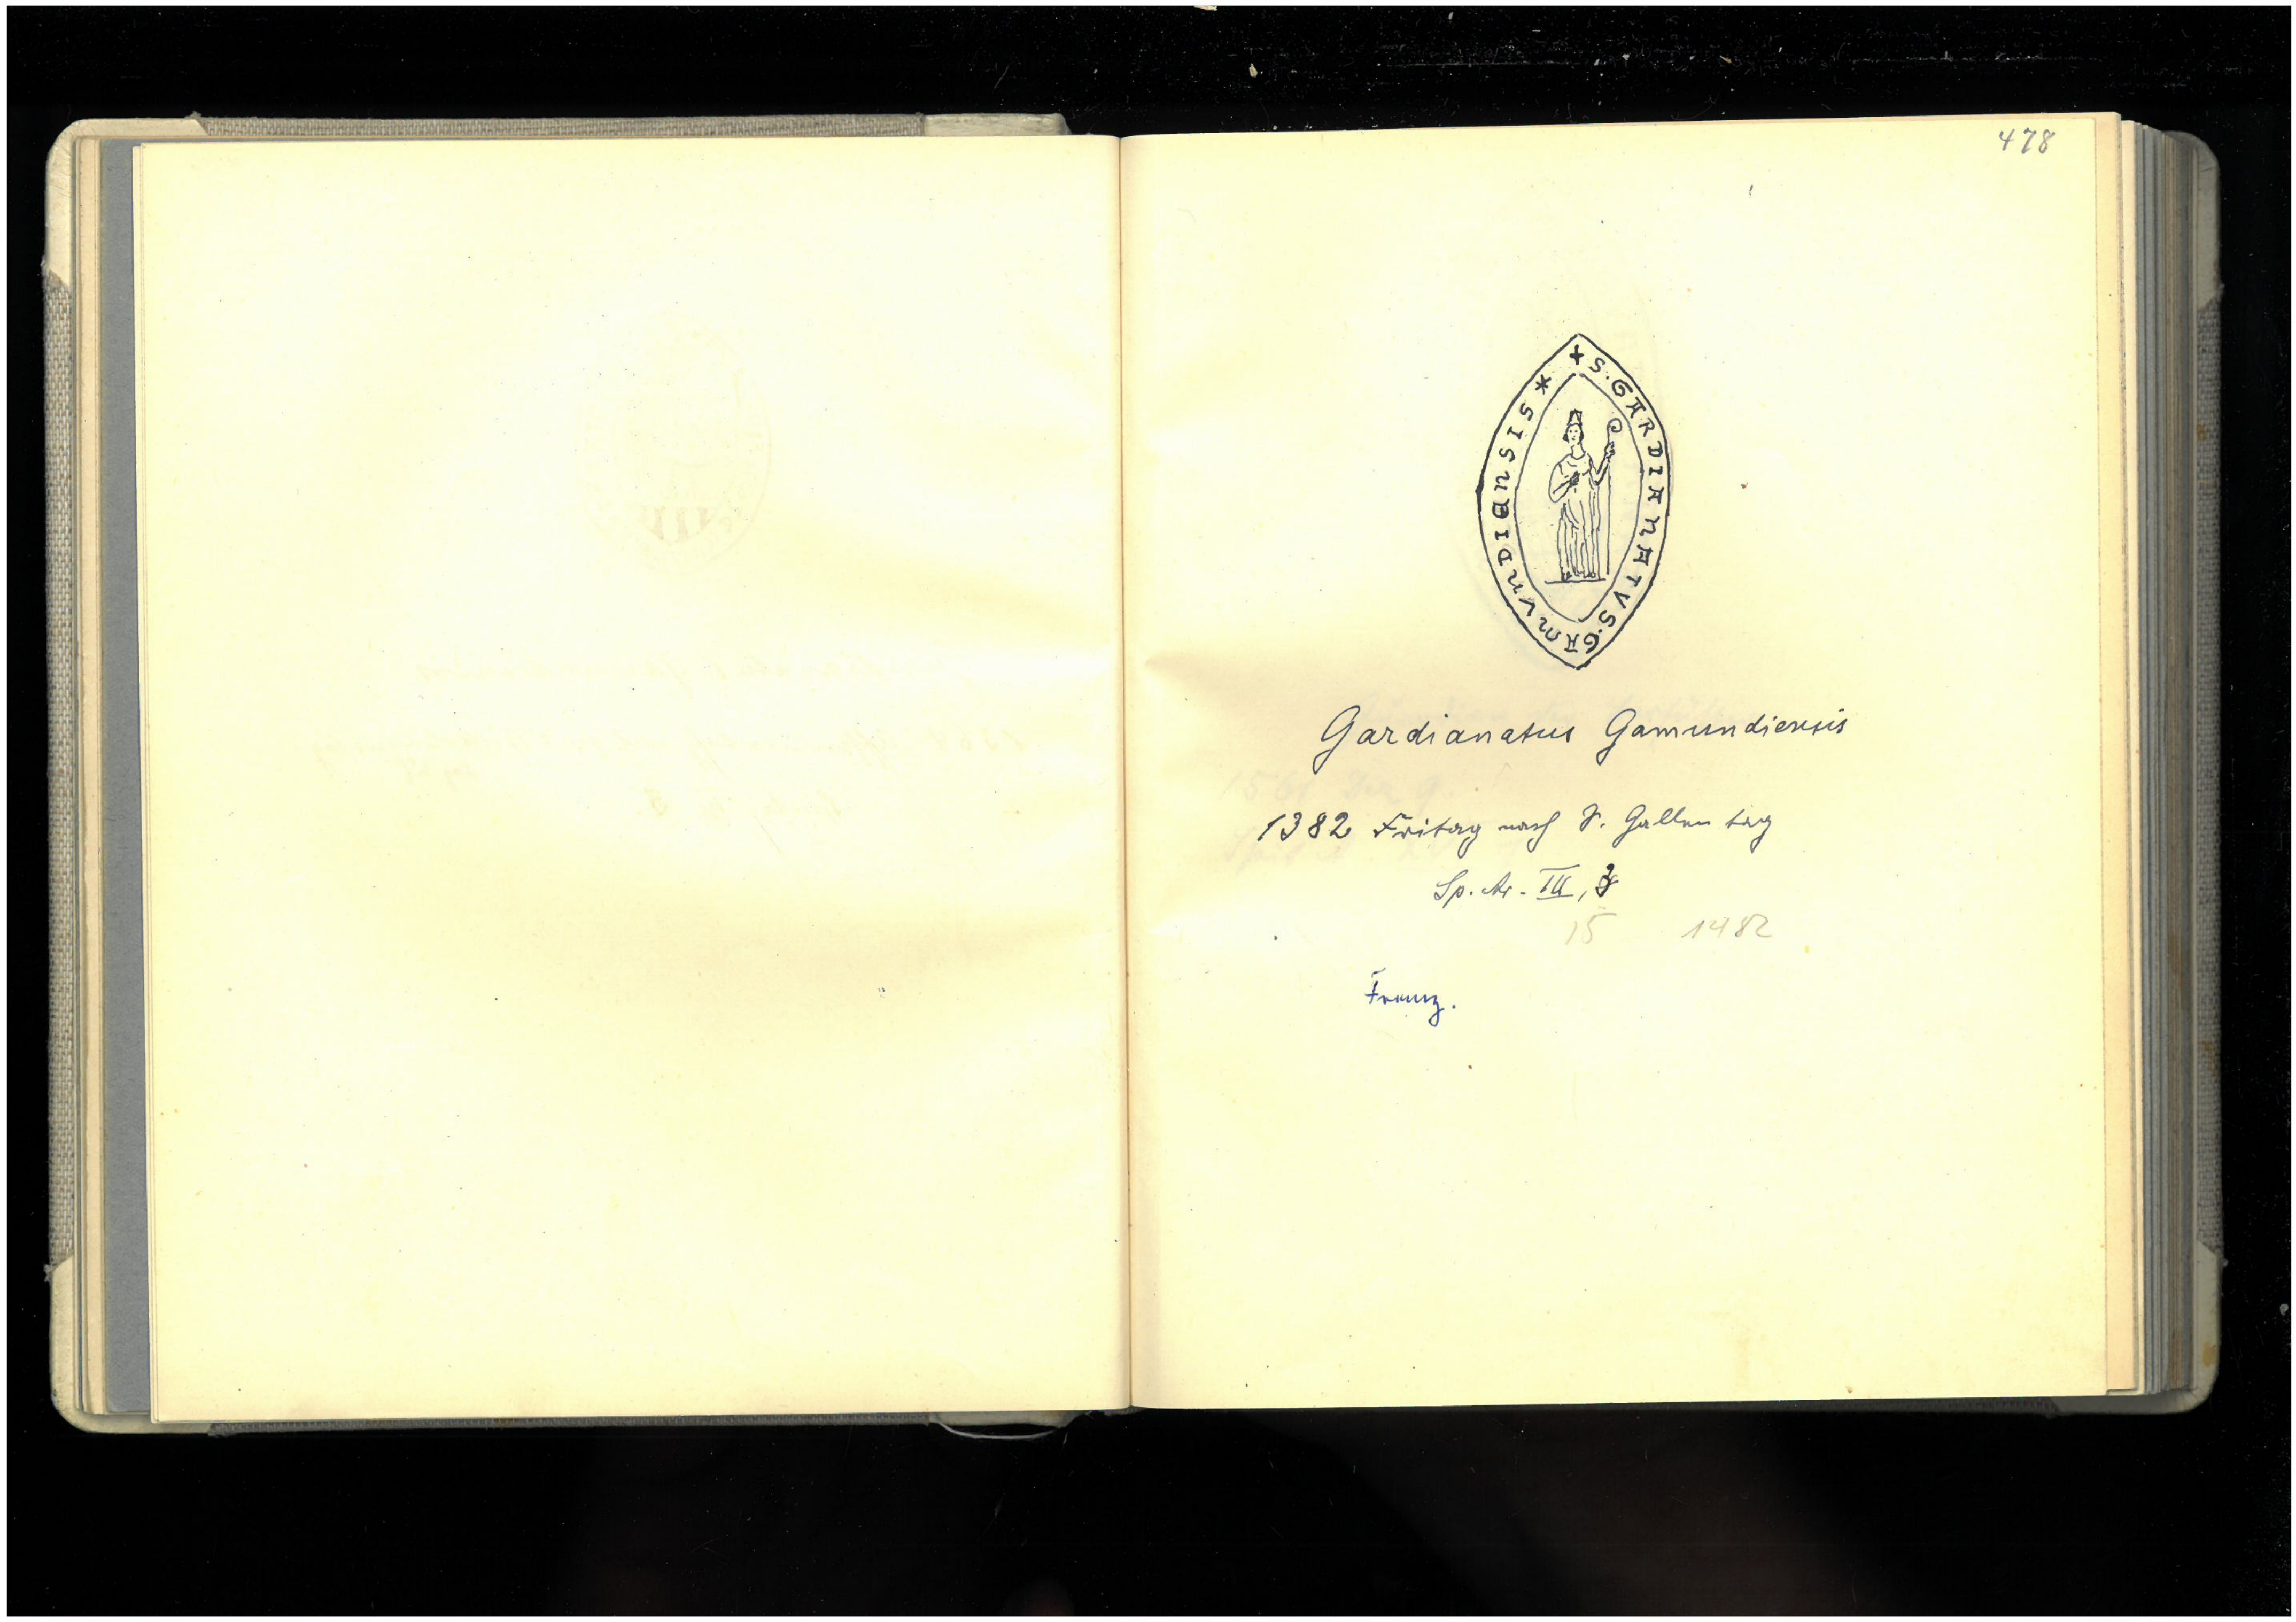 478
+ S. GARDIANATVS. GAMVNDIENSIS *
Gardianatus Gamundiensis
1382 Fritag nach S. Gallen tag
Sp. Ar. III, 3
15 1482
Franz.